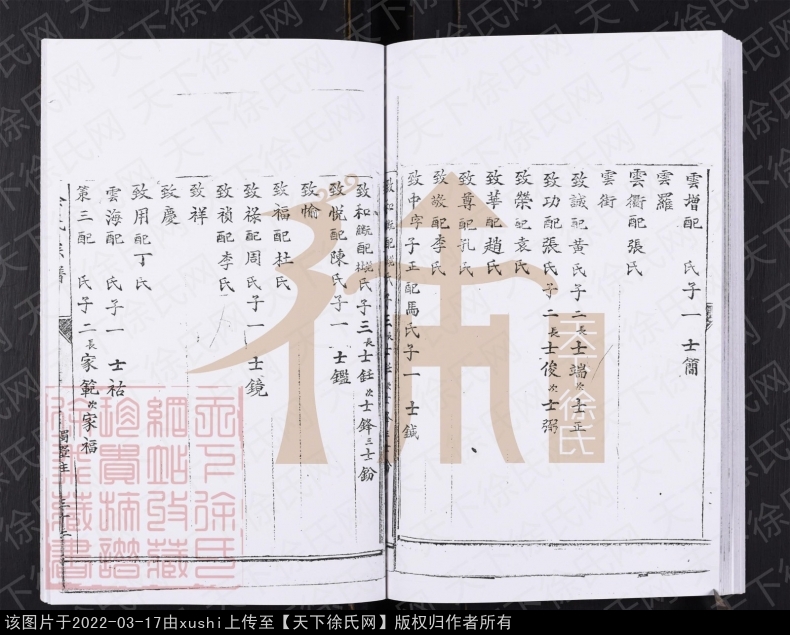 雲增配　氏子一　士簡
雲羅
雲衢配張氏
雲街
致誠配黃氏子二長士端次士正
致功配張氏子二長士俊次士弼
致榮配袁氏
致華配趙氏
致尊配孔氏
致敬配李氏
致中字子正配馬氏子一　士鍼
致和配氏子三長士鈺次士鋒三士鈖
致悅配陳氏子一　士鑑
致愉
致福配杜氏
致祿配周氏子一　士鏡
致禎配李氏
致祥
致慶
致用配丁氏
雲海配　氏子一　士祜
第三配　氏子二長家範次家福
天下徐氏
天下徐氏網
該图片于2022-03-17由xushi上传至【天下徐氏网】版权归作者所有